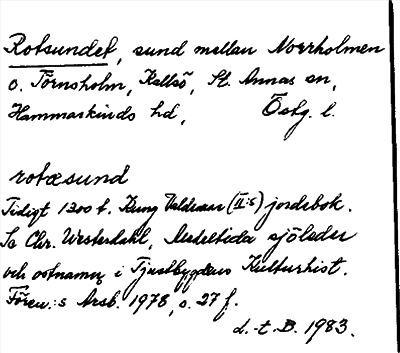 Rotsundet, sund mellan Norrholmen
o. Törnsholm, Kallsö, St. Annas sn,
Hammarkinds hd, Östg. l.
rotæsund
Tidigt 1300 t. Kung Valdemar (II:s) jordebok.
Se Chr. Westerdahl, Medeltida sjöleder
och ortnamn i Tjustbygdens Kulturhist.
Fören:s Årsb. 1978, s. 27 f.
d.-t. B. 1983.